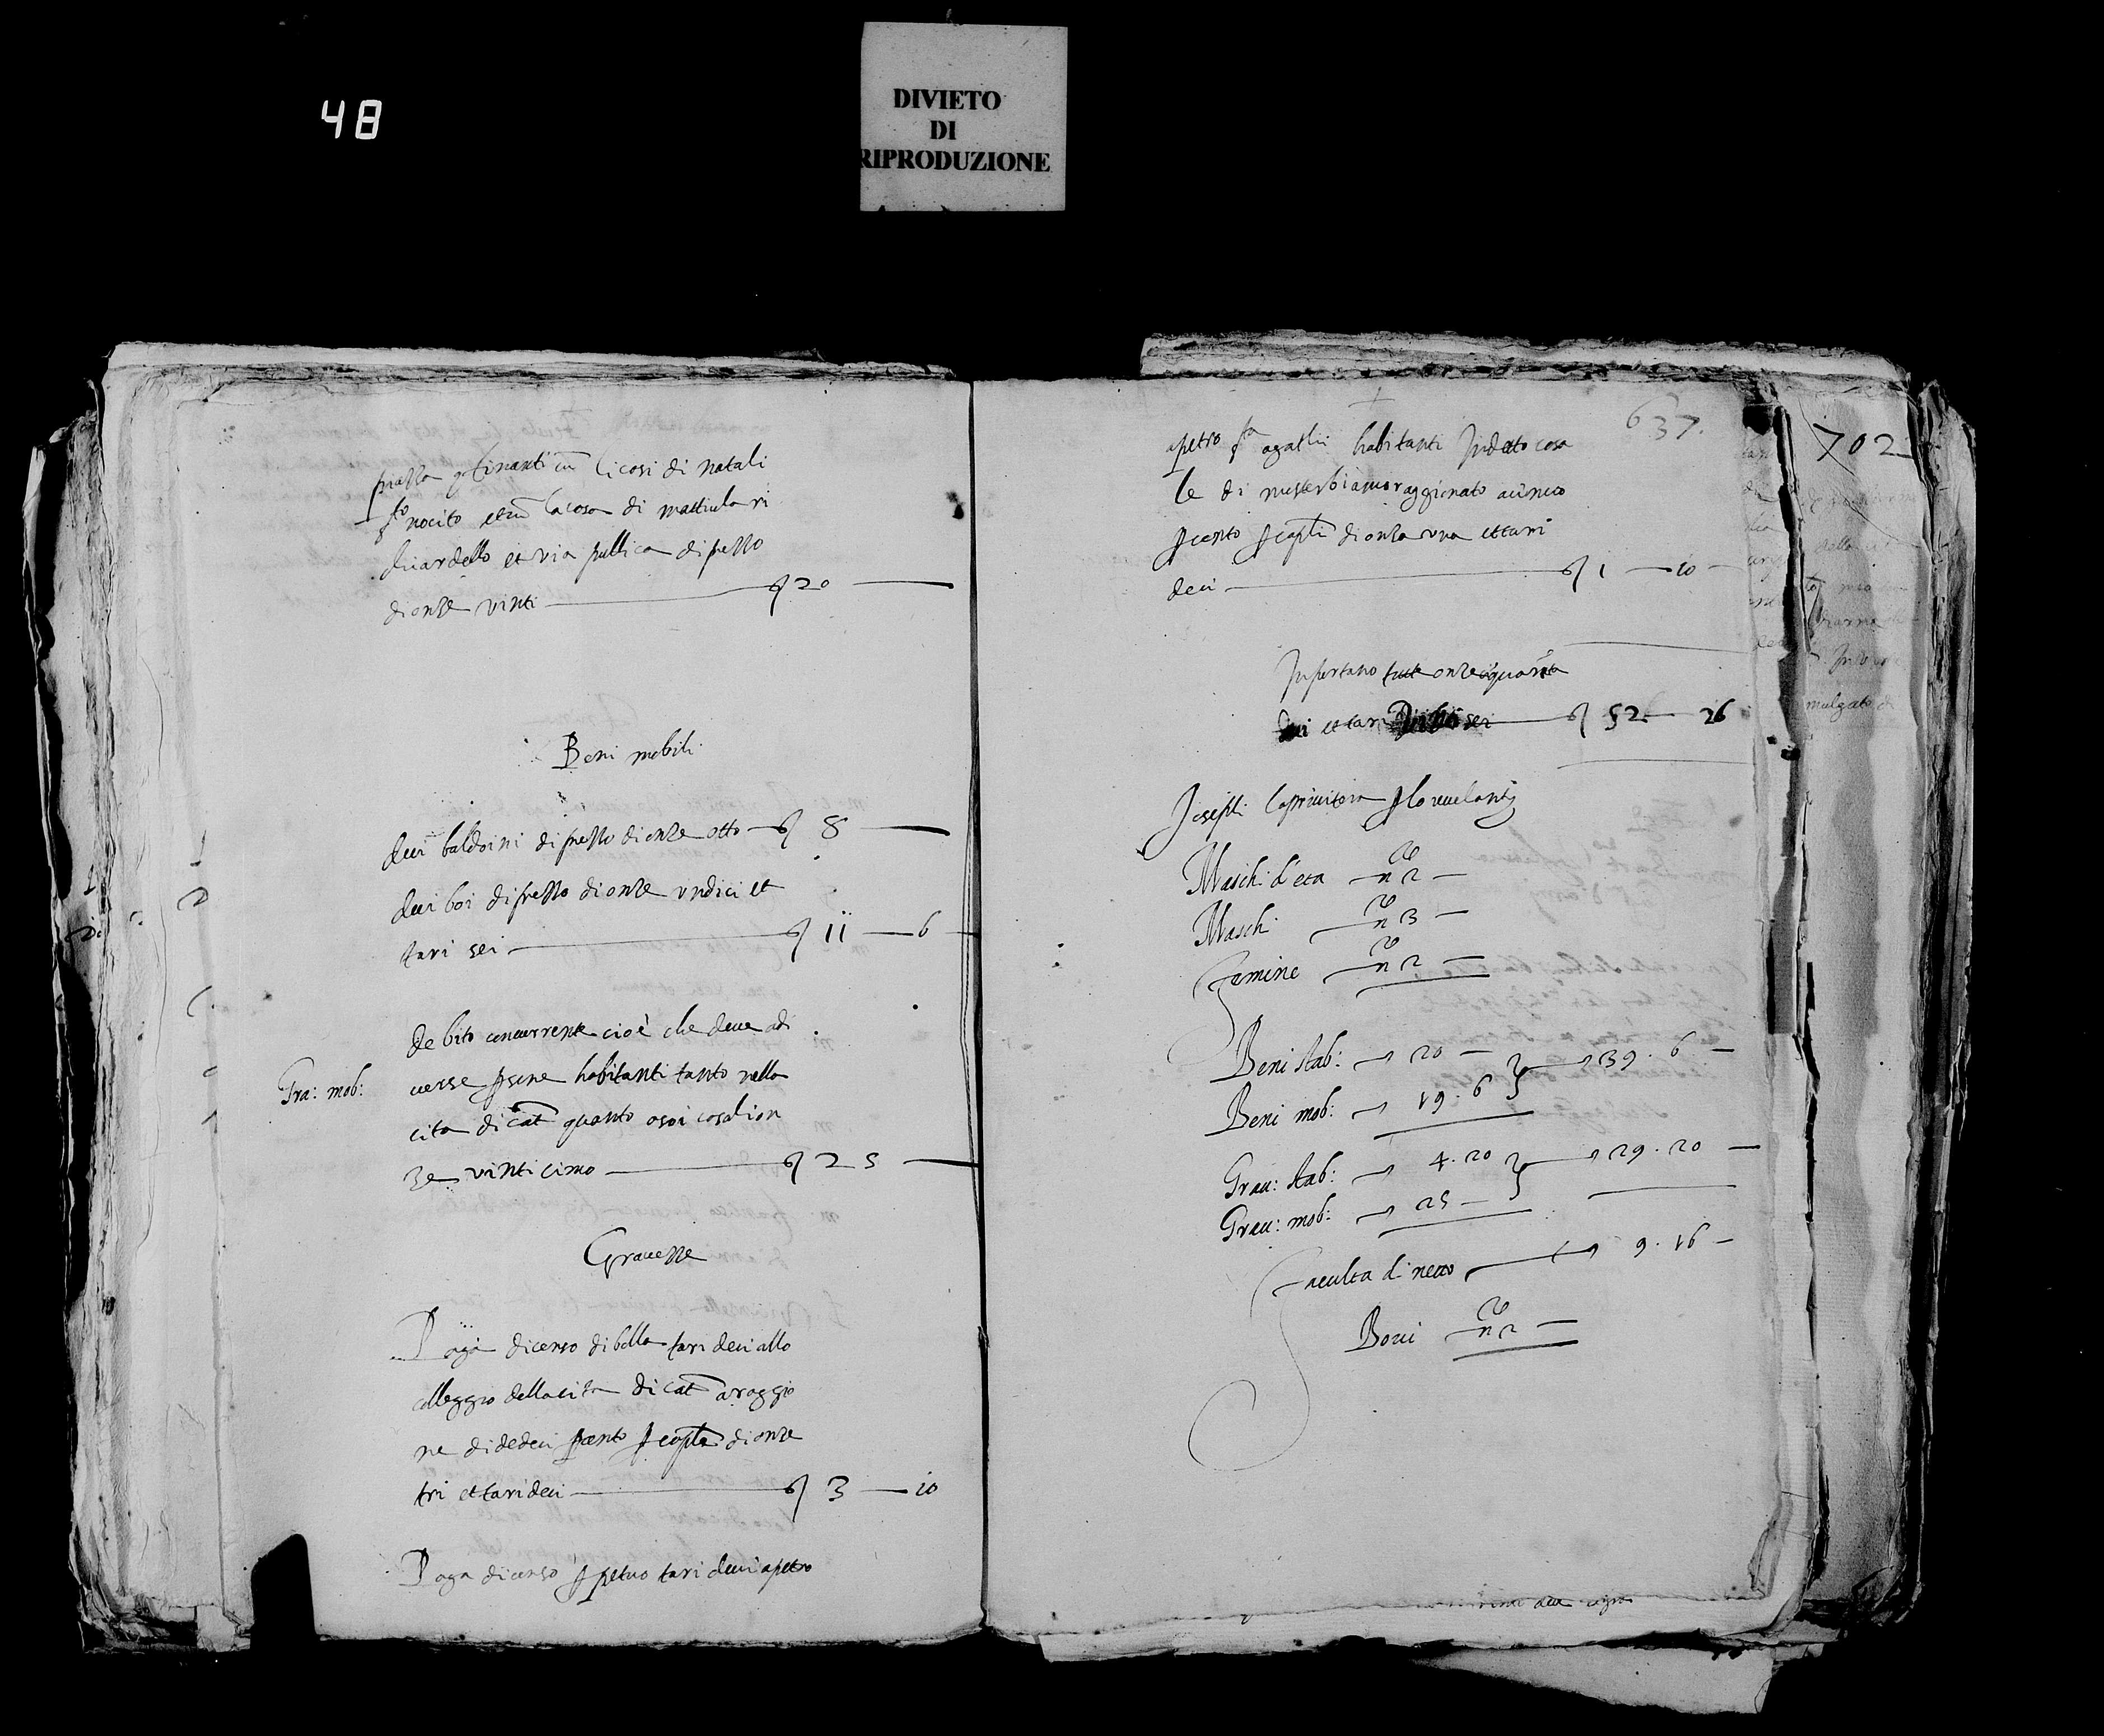 48
DIVIETO
DI
RIPRODUZIONE
piassa confinanti cu li casi di natali
nocito et cu la casa di mattiula ri
chiardello et via publica di presso
di onze vinti 20
Beni mobili
dui baldoini di presso di onze otto 8
dui boi di presso di onze undici et
tari sei 11 6
Gra: mob:
debito concurrente cioè che deve a di
verse psone habitanti tanto nella
cita di cat quanto a soi casali on
ze vinticinco 25
Gravezze
Paga di censo di bolla tari deci allo
colleggio della cita di cat a raggio
ne di deci p cento p caple di onze
tri et tari deci 3 10
Paga di censo ppetuo tari deci a petro
637.
702
a petro agathi habitanti in detto casa
le di musterbianco raggionato a cinco
p cento p capli di onza una et tari
deci 1 10
Inportano tutte onze cinquanta
dui et tari vinti sei 52 26
Joseph
Maschi d'eta n 2
Maschi n 3
Femine n 2
Beni stab: 20 39. 6
Beni mob: 19. 6
Grau: stab: 4. 20 29. 20
Grau: mob: 25
Faculta di netto 9. 16
Bovi n 2